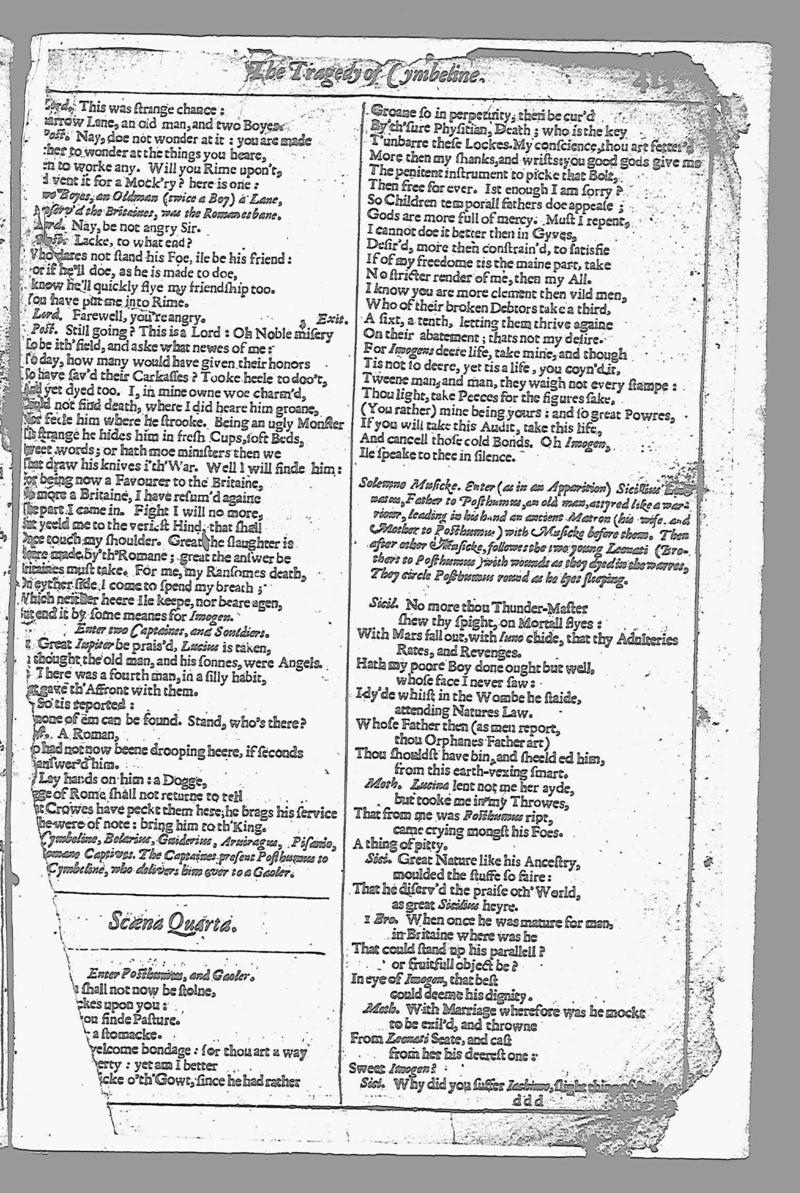 The Tragedy of Cymbeline.
Lord. This was strange chance:
arrow Lane, an old man, and two Boyes.
Post. Nay, doe not wonder at it: you are made
her to wonder at the things you heare,
en to worke any. Will you Rime upon't,
d vent it for a Mock'ry? here is one:
wo Boyes, an Oldman (twice a Boy) a Lane,
eserv'd the Britaines, was the Romanes bane.
Lord. Nay, be not angry Sir.
Post. Lacke, to what end?
Who dares not stand his Foe, ile be his friend:
or if he'll doe, as he is made to doe,
know he'll quickly flye my friendship too.
You have put me into Rime.
Lord. Farewell, you're angry. Exit.
Post. Still going? This is a Lord: Oh Noble misery
To be ith'field, and aske what newes of me:
To day, how many would have given their honors
To have sav'd their Carkasses? Tooke heele to doo't,
And yet dyed too. I, in mine owne woe charm'd,
Could not find death, where I did heare him groane,
Nor feele him where he strooke. Being an ugly Monster
Tis strange he hides him in fresh Cups, soft Beds,
Sweet words; or hath moe ministers then we
That draw his knives i'th'War. Well I will finde him:
For being now a Favourer to the Britaine,
No more a Britaine, I have resum'd againe
The part I came in. Fight I will no more,
But yeeld me to the veriest Hind, that shall
Once touch my shoulder. Great the slaughter is
Heere made by'th'Romane; great the answer be
Britaines must take. For me, my Ransomes death,
On eyther side I come to spend my breath;
Which neither heere Ile keepe, nor beare agen,
But end it by some meanes for Imogen.
Enter two Captaines, and Souldiers.
1 Great Iupiter be prais'd, Lucius is taken,
thought the old man, and his sonnes, were Angels.
There was a fourth man, in a silly habit,
at gave th'Affront with them.
So tis reported:
none of em can be found. Stand, who's there?
A Roman,
o had not now beene drooping heere, if seconds
answer'd him.
Lay hands on him: a Dogge,
gge of Rome shall not returne to tell
at Crowes have peckt them here; he brags his service
he were of note: bring him to th'King.
Cymbeline, Belarius, Guiderius, Arviragus, Pisanio,
omane Captives. The Captaines present Posthumus to
Cymbeline, who delivers him over to a Gaoler.
Scæna Quarta.
Enter Posthumus, and Gaoler.
shall not now be stolne,
ckes upon you:
ou finde Pasture.
a stomacke.
elcome bondage: for thou art a way
erty: yet am I better
icke o'th'Gowt, since he had rather
Groane so in perpetuity, then be cur'd
By'th'sure Physitian, Death; who is the key
T'unbarre these Lockes. My conscience, thou art fetter'd
More then my shanks, and wrists: you good gods give me
The penitent instrument to picke that Bolt,
Then free for ever. Ist enough I am sorry?
So Children temporall fathers doe appease;
Gods are more full of mercy. Must I repent,
I cannot doe it better then in Gyves,
Desir'd, more then constrain'd, to satisfie
If of my freedome tis the maine part, take
No stricter render of me, then my All.
I know you are more clement then vild men,
Who of their broken Debtors take a third,
A sixt, a tenth, letting them thrive againe
On their abatement; thats not my desire.
For Imogens deere life, take mine, and though
Tis not so deere, yet tis a life, you coyn'd it,
Tweene man, and man, they waigh not every stampe:
Thou light, take Peeces for the figures sake,
(You rather) mine being yours: and so great Powres,
If you will take this Audit, take this life,
And cancell those cold Bonds. Oh Imogen,
Ile speake to thee in silence.
Solemno Musicke. Enter (as in an Apparition) Sicilius
natus, Father to Posthumus, an old man, attyred like a war-
riour, leading in his hand an ancient Matron (his wife, and
Mother to Posthumus) with Musicke before them. Then
after other Musicke, followes the two young Leonati (Bro-
thers to Posthumus) with wounds as they dyed in the warres,
They circle Posthumus round as he lyes sleeping.
Sicil. No more thou Thunder-Master
shew thy spight, on Mortall flyes:
With Mars fall out, with Iuno chide, that thy Adulteries
Rates, and Revenges.
Hath my poore Boy done ought but well,
whose face I never saw:
I dy'de whilst in the Wombe he staide,
attending Natures Law.
Whose Father then (as men report,
thou Orphanes Father art)
Thou shouldst have bin, and sheelded him,
from this earth-vexing smart.
Moth. Lucina lent not me her ayde,
but tooke me in my Throwes,
That from me was Posthumus ript,
came crying mongst his Foes.
A thing of pitty.
Sici. Great Nature like his Ancestry,
moulded the stuffe so faire:
That he diserv'd the praise oth'World,
as great Sicilius heyre.
1 Bro. When once he was mature for man,
in Britaine where was he
That could stand up his parallell?
or fruitfull object be?
In eye of Imogen, that best
could deeme his dignity.
Moth. With Marriage wherefore was he mockt
to be exil'd, and throwne
From Leonati Seate, and cast
from her his deerest one:
Sweet Imogen?
Sici. Why did you suffer Iachimo, slight thing of
ddd